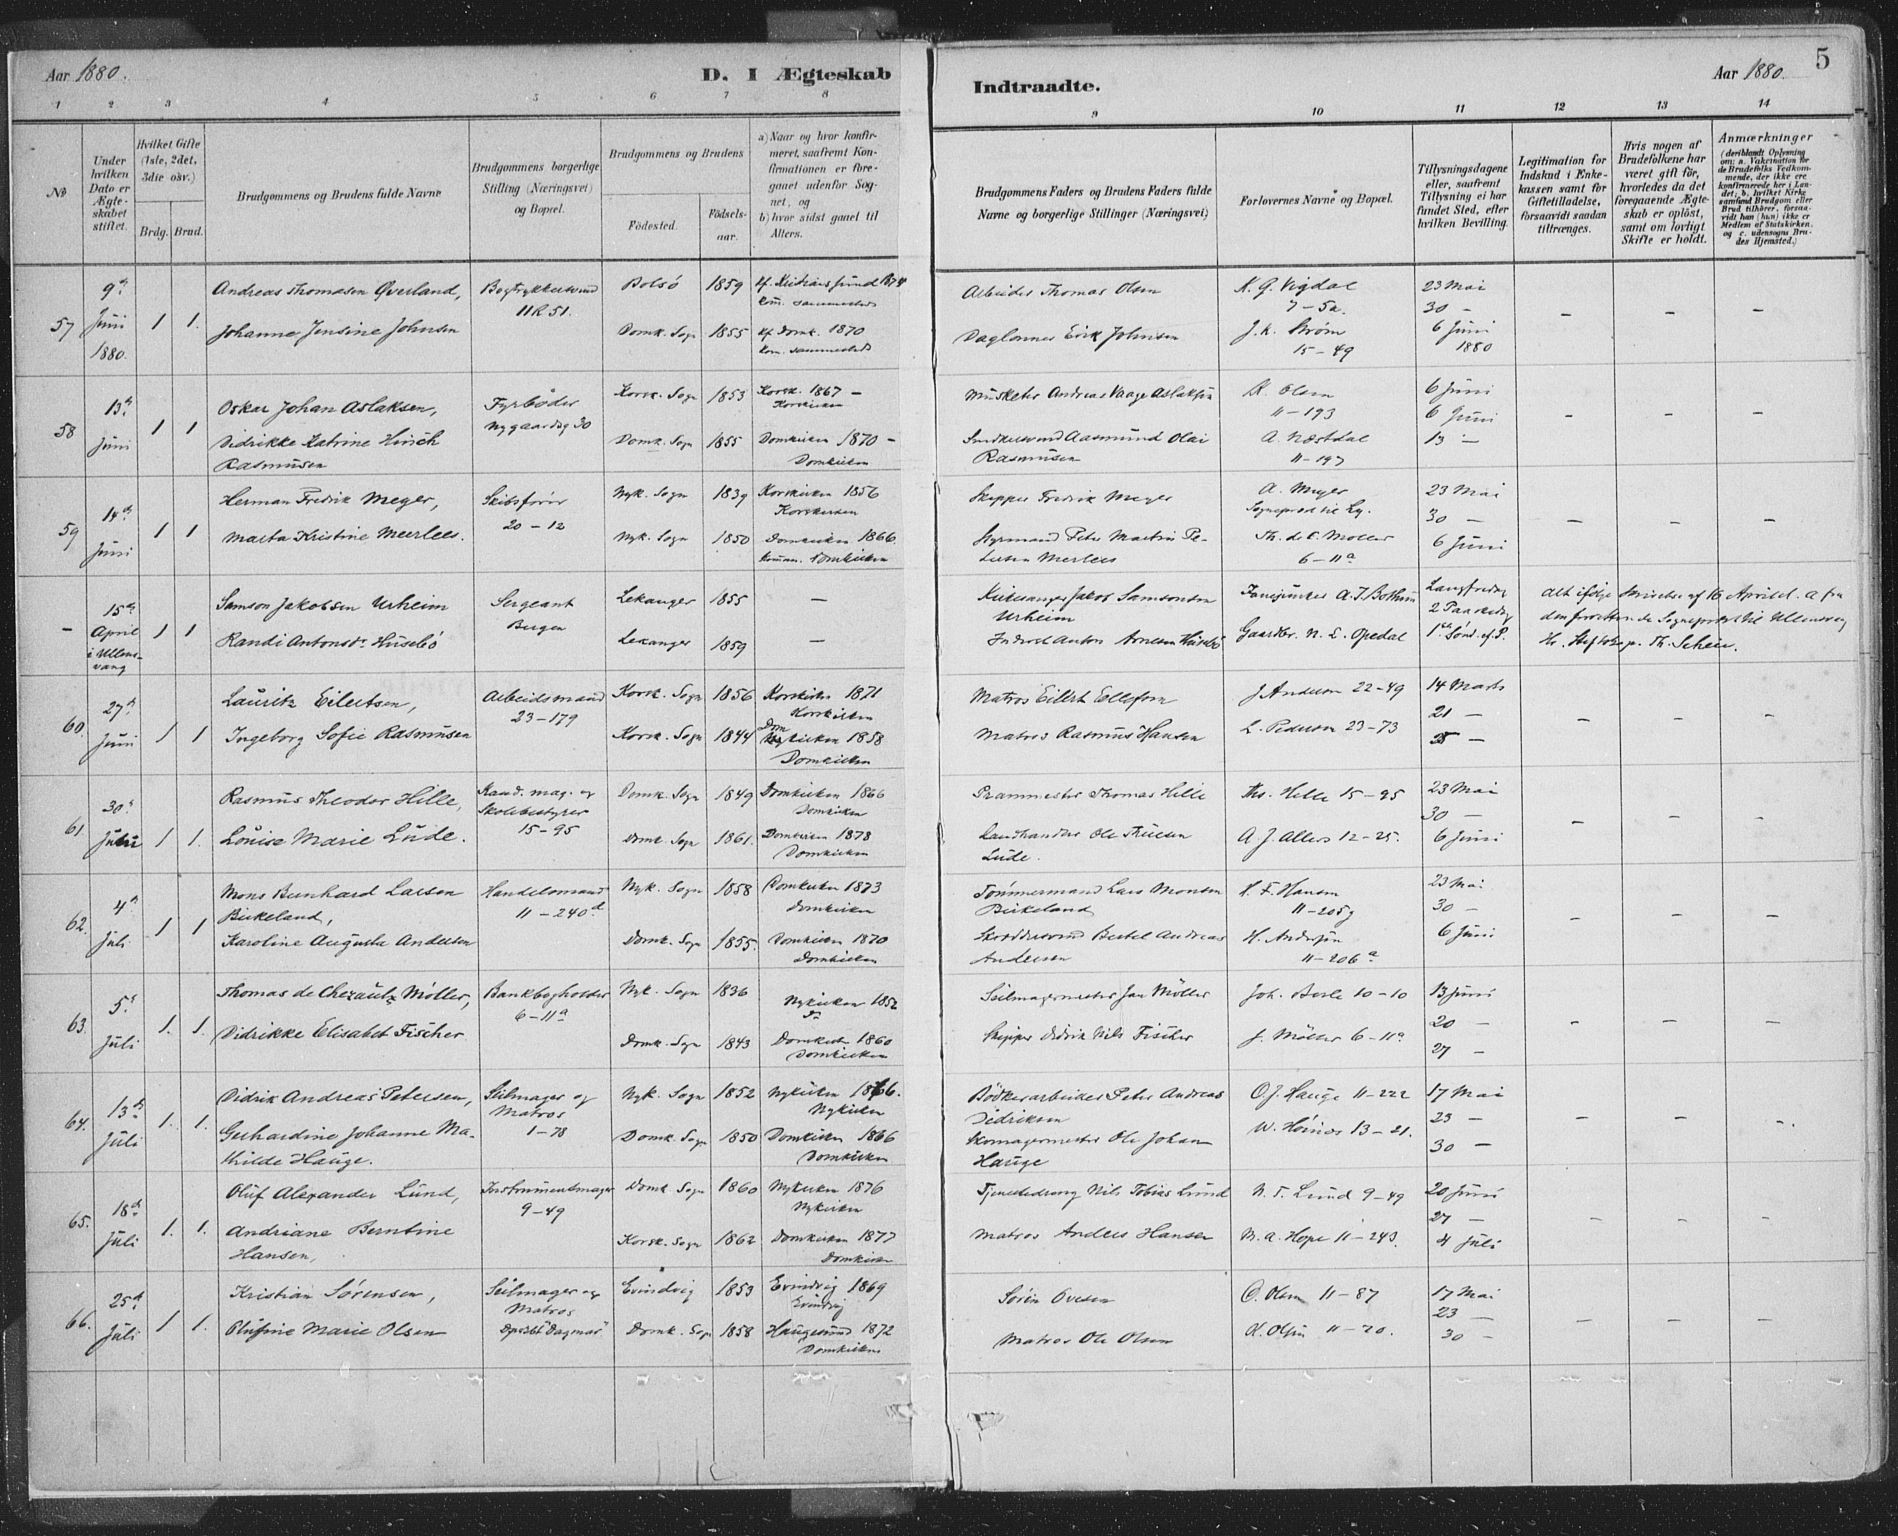 Aar 1880.
D. I Ægteskab
Indtraadte.
Aar 1880.
5
1 2 3 4 5 6 7 8
9 10 11 12 13 14
No
Under hvilken Dato er Ægteskabet stiftet.
Hvilket Gifte (1ste, 2det, 3die osv.)
Brdg. Brud.
Brudgommens og Brudens fulde Navne
Brudgommens borgerlige Stilling (Næringsvei) og Bopæl.
Brudgommens og Brudens
Födested.
Födselsaar.
a) Naar og hvor konfirmeret, saafremt Konfirmationen er foregaaet udenför Sognet, og
b) hvor sidst gaaet til Alters.
Brudgommens Faders og Brudens Faders fulde Navne og borgerlige Stillinger (Næringsvei)
Forlovernes Navne og Bopæl.
Tillysningsdagene eller, saafremt Tillysning ei har fundet Sted, efter hvilken Bevilling.
Legitimation for Indskud i Enkekassen samt for Giftetilladelse, forsaavidt saadan tiltrænges.
Hvis nogen af Brudefolkene har været gift för, hvorledes da det foregaaende Ægteskab er oplöst, samt om lovligt Skifte er holdt.
Anmærkninger
(deriblandt Oplysning om: a. Vakcination for de Brudefolks Vedkommende, der ikke ere konfirmerede her i Landet; b. hvilket Kirkesamfund Brudgom eller Brud tilhörer, forsaavidt han (hun) ikke er Medlem af Statskirken. og c. udensogns Brudes Hjemsted.)
57 9de Juni 1880. 1 1.
Andreas Thomasen Øverland, Bogtrykkersvend 11 R 51. Bolsö 1859 kf. Kristianssund 1874 kom. sammesteds
Johanne Jensine Johnsen Domk. Sogn 1855 kf. Domk. 1870 kom. sammesteds
Arbeider Thomas Olsen K. G. Vigdal 7 – 5a. 23 Mai
30 –
Daglønner Eirk Johnsen J. K. Strøm 15 – 49 6 Juni 1880
58 13de Juni 1 1
Oskar Johan Aslaksen, Fyrbøder Nygaardsg 30 Korsk. Sogn 1853 Korsk. 1867 – Korskirken
Didrikke Katrine Hirsch Rasmusen Domk. Sogn 1855 Domkirken 1870 – Domkirken
Musketer Andreas Vaage Aslaksen K. Olsen 11 – 193 6 Juni
6 Juni
Snedkersvend Aasmund Olai Rasmusen A. Næstdal 11 – 197 13 –
59 14de Juni 1 1
Herman Fredrik Meyer, Skibsfører 20 – 12 Nyk. Sogn 1839 Korskirken 1856 Korskirken
Marta Kristine Meerlees. Nyk. Sogn 1850 Domkirken 1866 Domkirken
Skipper Fredrik Meyer A. Meyer Sogneprest til 23 Mai
30 –
Styrmand Peter Martin Petersen Merlees Th. de C. Møller 6 – 11a 6 Juni
– 15de April i Ullensvang 1 1
Samson Jakobsen Urheim Sergeant Bergen Lekanger 1855 –
Randi Antonsdr. Husebö Lekanger 1859 –
Kirkesanger Jakob Samsonsen Urheim Fanejunker A. J. Bothun Langfredag
2 Paaskedag
Inderst Anton Arnesen Husebö Gaardbr. N. L. Opedal 1ste Sönd. ef. P.
Alt ifølge Skrivelse af 16 April d. A. fra
den fungerende Sogneprest til Ullensvang
Hr. Th. Scheie.
60. 27de Juni 1 1
Lauritz Eilertsen, Arbeidsmand 23 – 179 Korsk. Sogn 1856 Korskirken 1871 Korskirken
Ingeborg Sofie Rasmusen Korsk. Sogn 1844 Domkirken 1858 Domkirken
Matros Eilert Ellefsen J. Andersen 22 – 49 14 Marts
21 –
Matros Rasmus Hansen L. Pedersen 23 – 73 28 –
61. 30te Juni 1 1.
Rasmus Theodor Hille, Kand. mag. og Skolebestyrer 15 – 95 Domk. Sogn 1849 Domkirken 1866 Domkirken
Louise Marie Lude. Domk. Sogn 1861. Domkirken 1878 Domkirken
Prammester Thomas Hille Ths. Hille 15 – 95 23 Mai
30 –
Landhandler Ole Thuesen Lude. A. J. Allers 12 – 25. 6 Juni
62. 4de Juli 1 1
Mons Bernhard Larsen Birkeland, Handelsmand 11 – 240d Nyk. Sogn 1858 Domkirken 1873 Domkirken
Karoline Augusta Andersen Domk. Sogn 1855. Domkirken 1870 Domkirken
Tømmermand Lars Monsen Birkeland H. F. Hansen 11 – 205g 23 Mai
30 –
Skræddersvend Bertel Andreas Andersen H. Andersen 11 – 206a 6 Juni
63. 5te Juli 1. 1.
Thomas de Chezautz Møller, Bankbogholder 6 – 11a Nyk. Sogn 1836 Nykirken 1852 Do
Didrikke Elisabet Fischer Domk. Sogn 1843 Domkirk. 1860 Domkirken
Seilmagermester Jan Møller Joh. Berle 10 – 10 13 Juni
20 –
Skipper Didrik Nils Fischer J. Møller 6 – 11a 27 –
64. 13de Juli 1. 1.
Didrik Andreas Petersen, Seilmager og Matros 1 – 78 Nyk. Sogn 1852 Nykirken 1866. Nykirken
Gerhardine Johanne Mathilde Hauge. Domk. Sogn 1850 Domkirken 1866 Domkirken
Bödkerarbeider Peter Andreas Didriksen O. J. Hauge 11 – 222 17 Mai
23 –
Skomagermester Ole Johan Hauge W. Høinæs 13 – 21. 30 –
65. 18de Juli 1. 1.
Oluf Alexander Lund, Instrumentmager 9 – 49 Domk. Sogn 1860 Nykirken 1876 Nykirken
Andriane Berntine Hansen, Korsk. Sogn 1862 Domkirken 1877 Domkirken
Tjenestedreng Nils Tobias Lund N. T. Lund 9 – 49 20 Juni
27 –
Matros Anders Hansen M. A. Hope 11 – 243. 4 Juli
66. 25de Juli 1 1.
Kristian Sørensen, Seilmager og Matros Dpskbt "Dagmar" Evindvig 1853 Evindvig 1869 Evindvig
Olufine Marie Olsen Domk. Sogn 1858 Haugesund 1872 Domkirken
Søren Ovesen O. Olsen 11 – 87 17 Mai
23 –
Matros Ole Olsen K. Olsen 11 – 20. 30 –